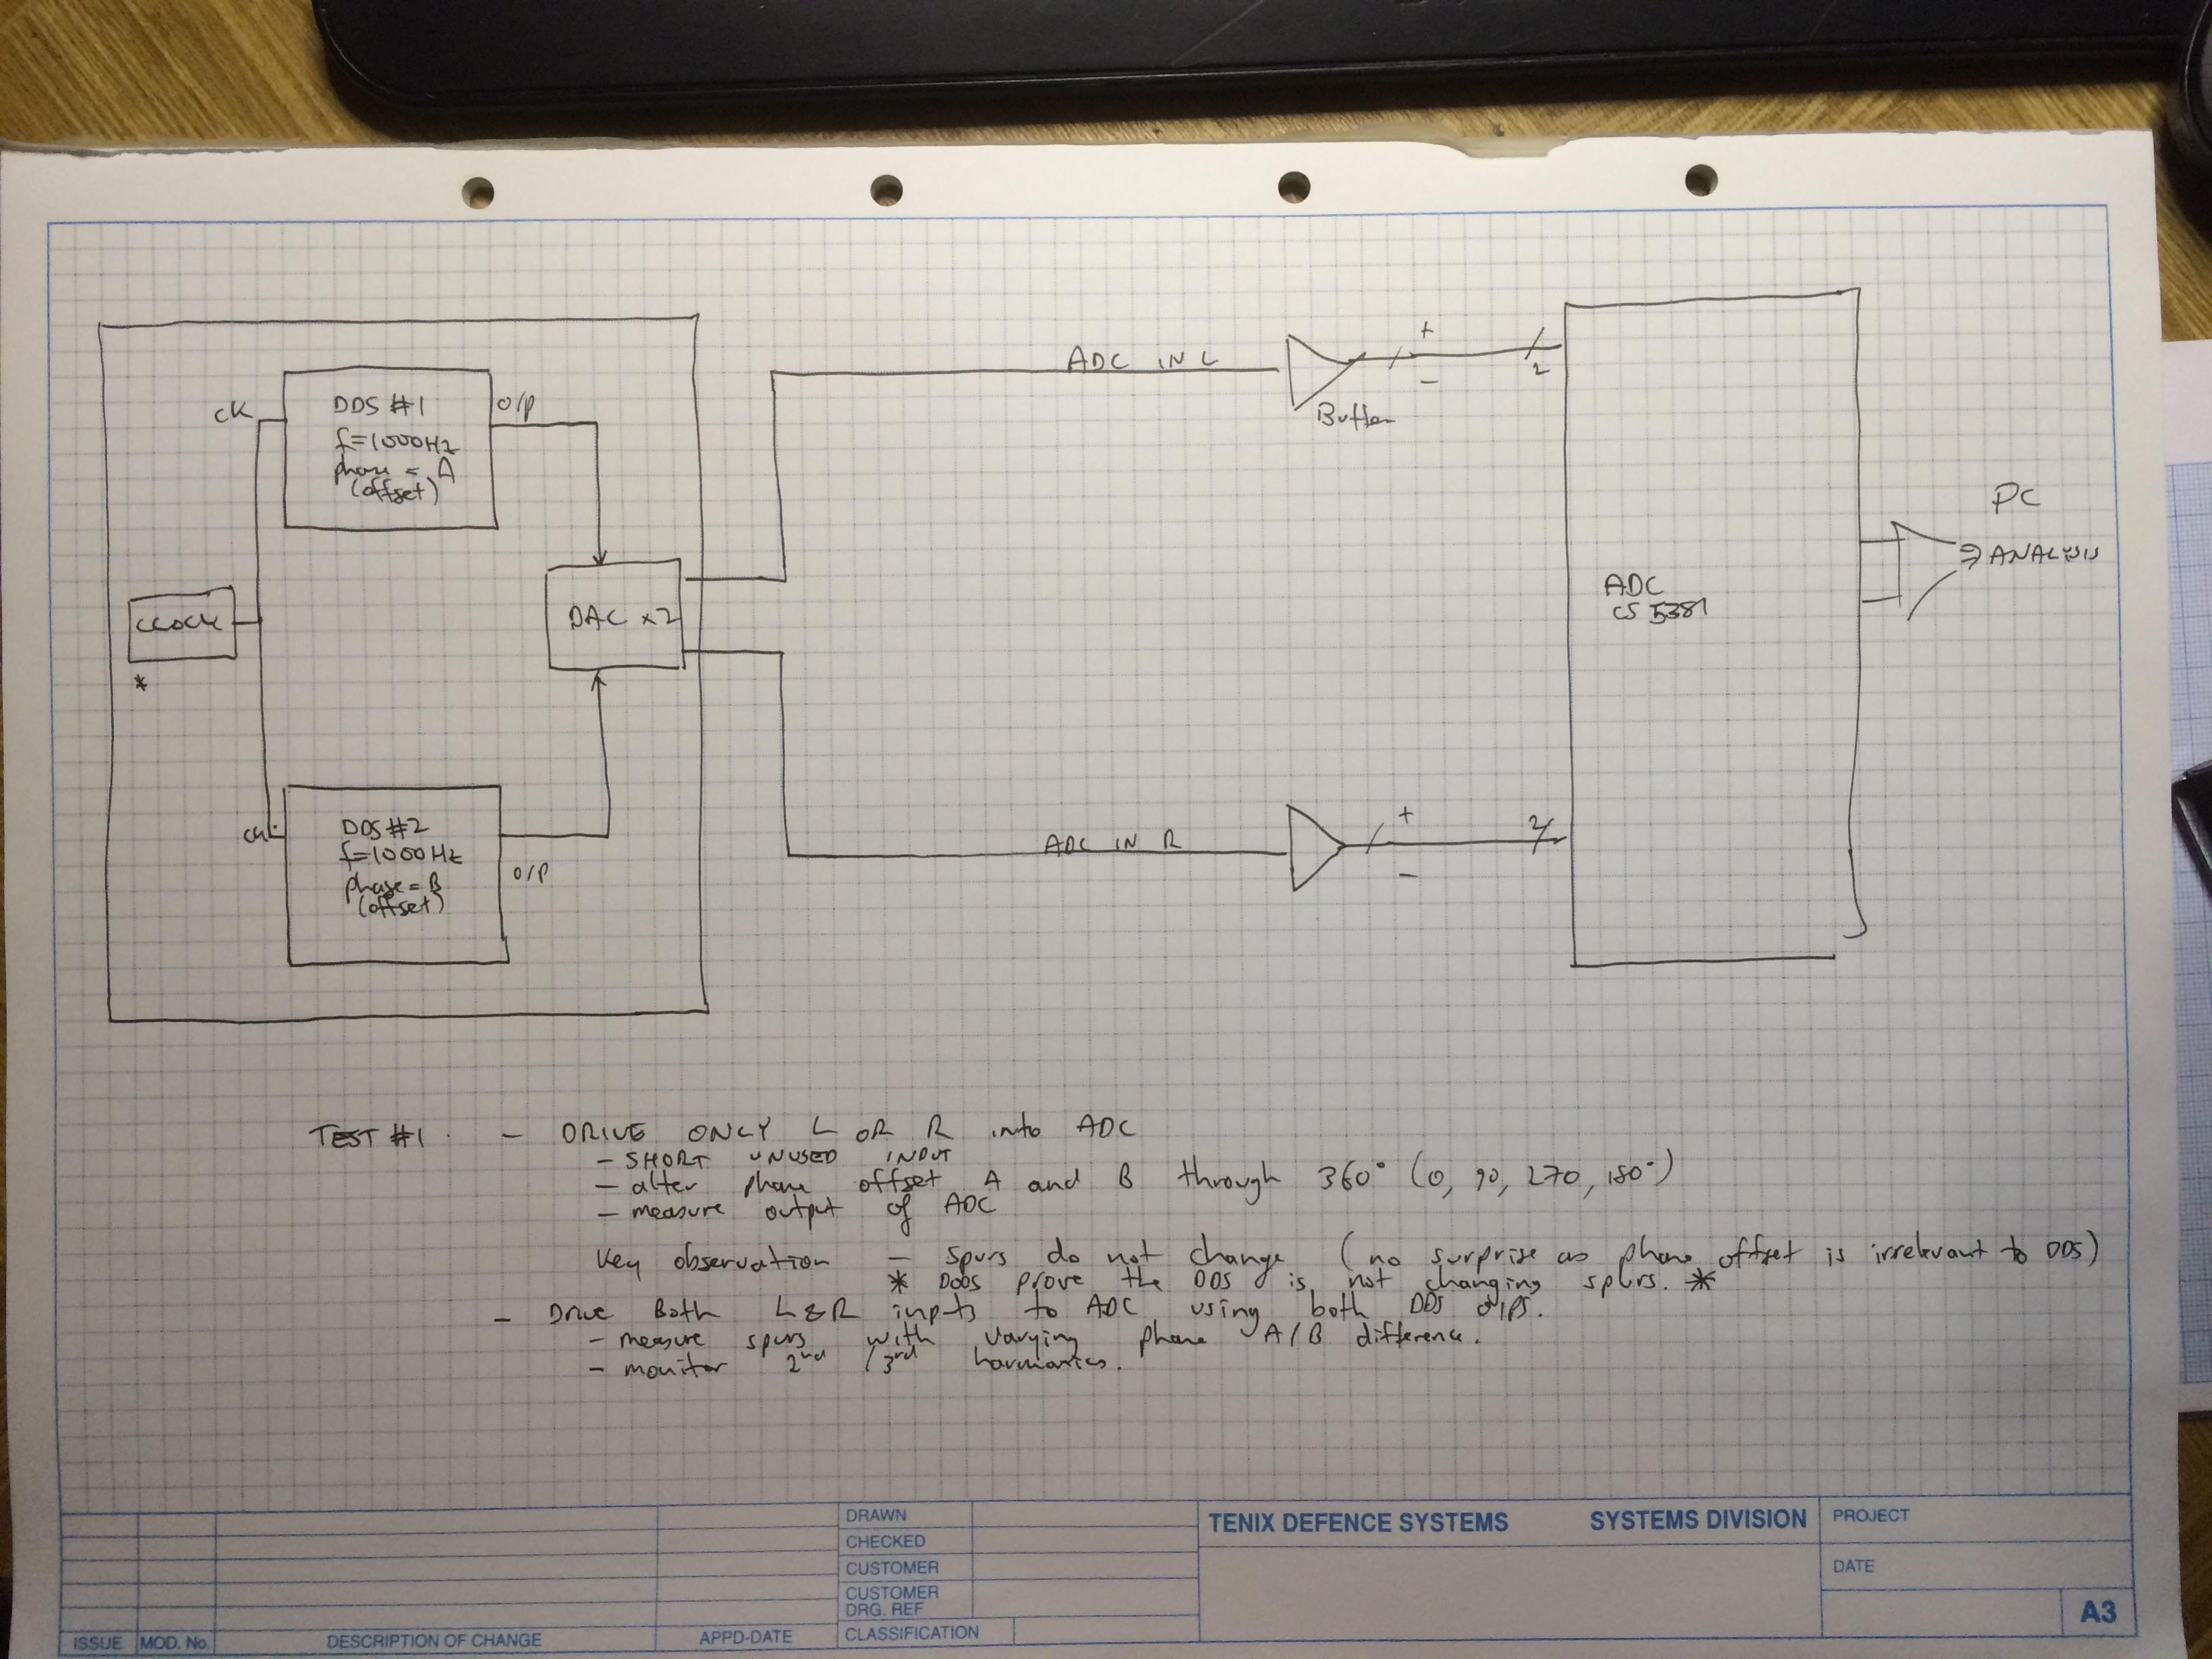 ADC IN L
+
-
2
Buffer
CK
DDS #1
f=1000Hz
phase = A
(offset)
O/P
PC
⇒ ANALYSIS
ADC
CS 5381
CLOCK
*
DAC x2
CK
DDS #2
f=1000Hz
phase = B
(offset)
O/P
ADC IN R
+
-
2
TEST #1 - DRIVE ONLY L OR R into ADC
- SHORT UNUSED INPUT
- alter phase offset A and B through 360° (0, 90, 270, 180°)
- measure output of ADC
Key observation - spurs do not change (no surprise as phase offset is irrelevant to DDS)
* Does prove the DDS is not changing spurs. *
- Drive Both L&R inputs to ADC using both DDS O/PS.
- measure spurs with varying phase A/B difference.
- monitor 2nd /3rd harmonics.
DRAWN
CHECKED
CUSTOMER
CUSTOMER
DRG. REF
CLASSIFICATION
TENIX DEFENCE SYSTEMS SYSTEMS DIVISION
PROJECT
DATE
A3
ISSUE MOD. No. DESCRIPTION OF CHANGE APPD-DATE